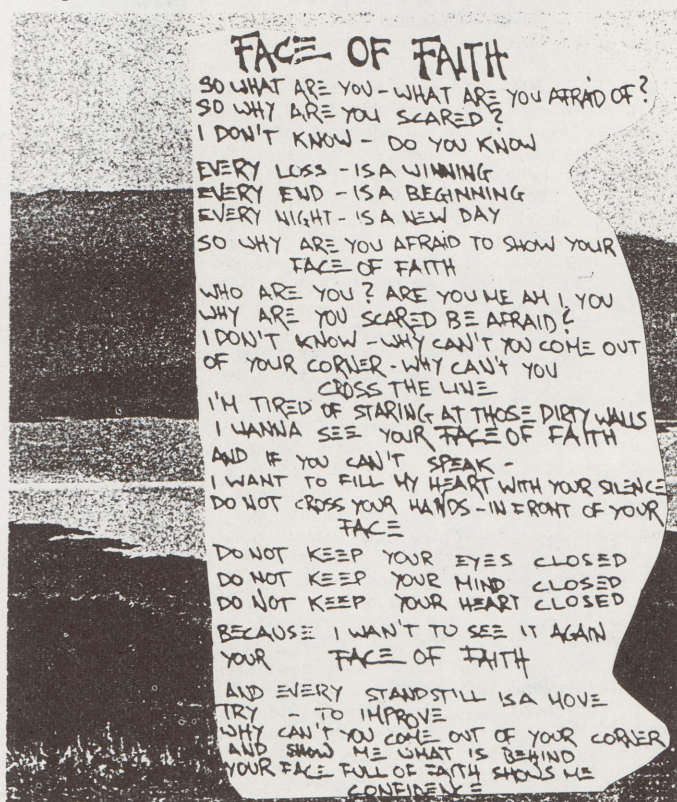 FACE OF FAITH
SO WHAT ARE YOU - WHAT ARE YOU AFRAID OF?
SO WHY ARE YOU SCARED?
I DON'T KNOW - DO YOU KNOW
EVERY LOSS - IS A WINNING
EVERY END - IS A BEGINNING
EVERY NIGHT - IS A NEW DAY
SO WHY ARE YOU AFRAID TO SHOW YOUR
FACE OF FAITH
WHO ARE YOU? ARE YOU ME AM I YOU
WHY ARE YOU SCARED BE AFRAID?
I DON'T KNOW - WHY CAN'T YOU COME OUT
OF YOUR CORNER - WHY CAN'T YOU
CROSS THE LINE
I'M TIRED OF STARING AT THOSE DIRTY WALLS
I WANNA SEE YOUR FACE OF FAITH
AND IF YOU CAN'T SPEAK -
I WANT TO FILL MY HEART WITH YOUR SILENCE
DO NOT CROSS YOUR HANDS - IN FRONT OF YOUR
FACE
DO NOT KEEP YOUR EYES CLOSED
DO NOT KEEP YOUR MIND CLOSED
DO NOT KEEP YOUR HEART CLOSED
BECAUSE I WAN'T TO SEE IT AGAIN
YOUR FACE OF FAITH
AND EVERY STANDSTILL IS A MOVE
TRY - TO IMPROVE
WHY CAN'T YOU COME OUT OF YOUR CORNER
AND SHOW ME WHAT IS BEHIND
YOUR FACE FULL OF FAITH SHOWS ME
CONFIDENCE